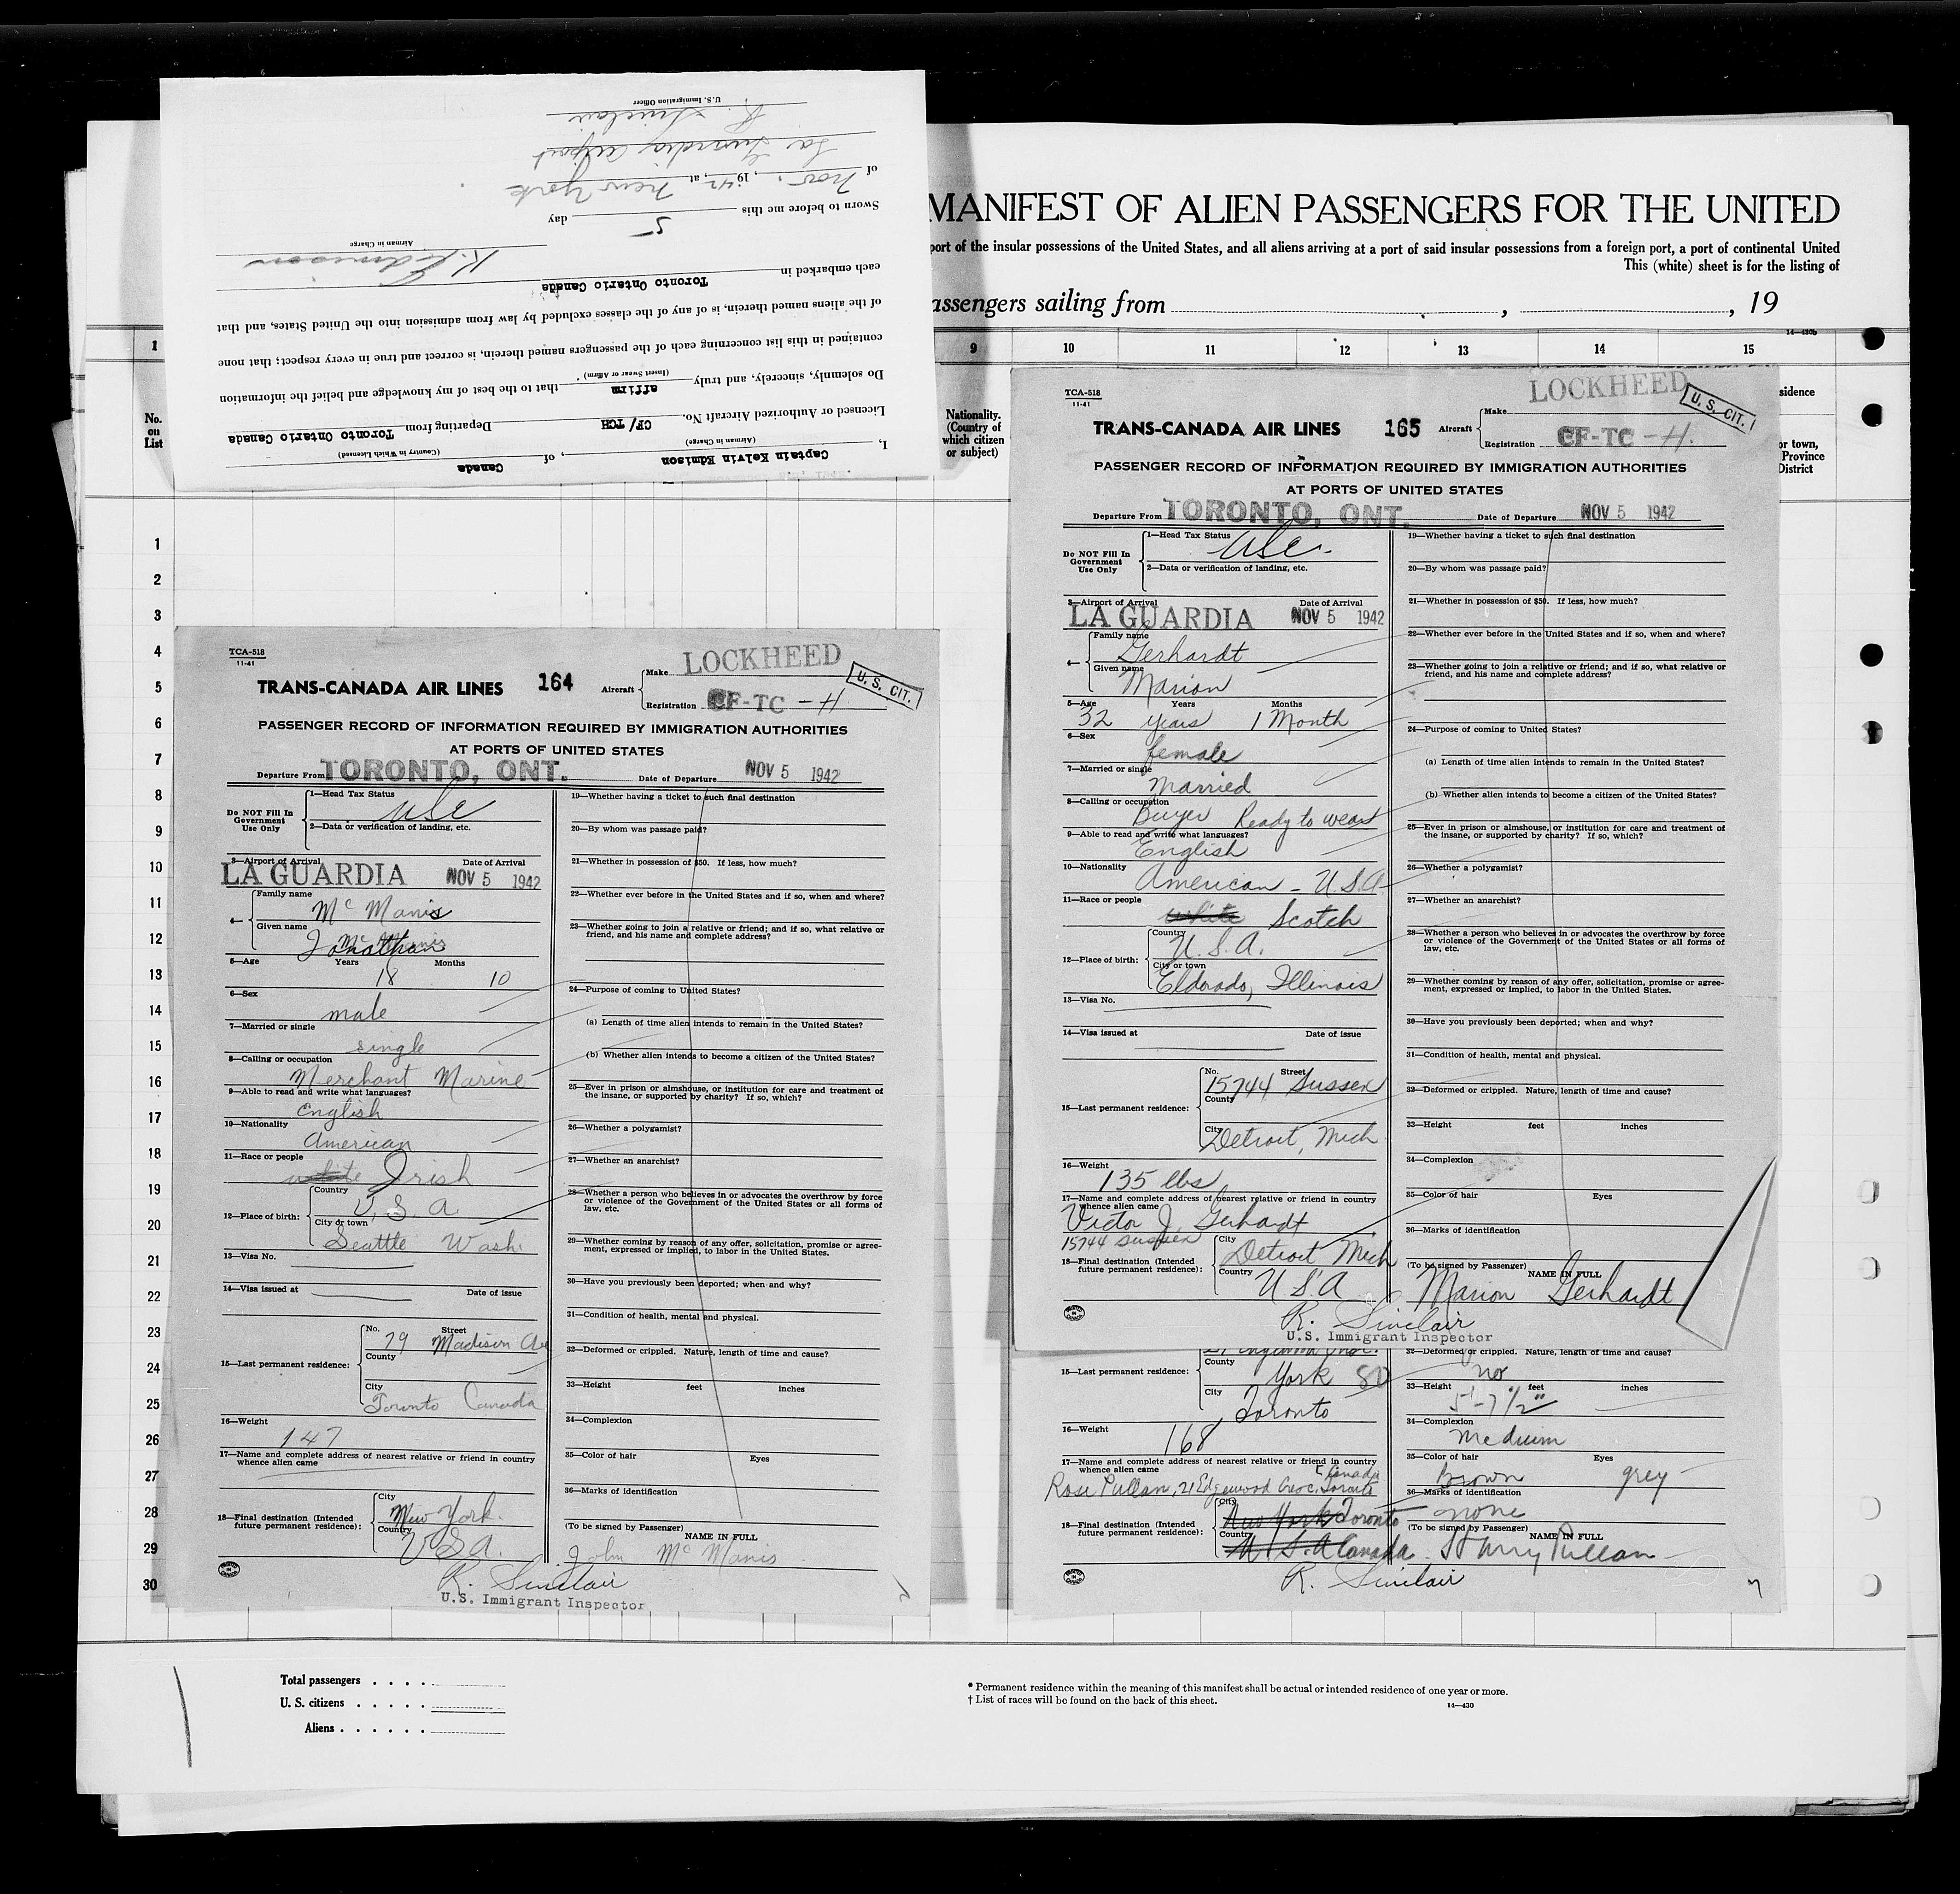 I, Captain Kelvin Edmison, of Canada
(Airman in Charge) (Country in Which Licensed)
Licensed or Authorized Aircraft No. CF/TCH Departing from Toronto Ontario Canada
Do solemnly, sincerely, and truly affirm that to the best of my knowledge and belief the information
(Insert Swear or Affirm)
contained in this list concerning each of the passengers named therein, is correct and true in every respect; that none
of the aliens named therein, is of any of the classes excluded by law from admission into the United States, and that
each embarked in Toronto Ontario Canada
K. Edmison
Airman in Charge
Sworn to before me this 5 day
of Nov., 1942, at New York
La Guardia Airport
R. Sinclair
U.S. Immigration Officer
MANIFEST OF ALIEN PASSENGERS FOR THE UNITED
port of the insular possessions of the United States, and all aliens arriving at a port of said insular possessions from a foreign port, a port of continental United
This (white) sheet is for the listing of
assengers sailing from , , 19
14—430b
1 9 10 11 12 13 14 15
No. on List
Nationality. (Country of which citizen or subject)
sidence
or town,
Province
District
1
2
3
4
5
6
7
8
9
10
11
12
13
14
15
16
17
18
19
20
21
22
23
24
25
26
27
28
29
30
TCA-518
11-41
LOCKHEED
U. S. CIT.
TRANS-CANADA AIR LINES 164 Aircraft Make
Registration CF-TC -H
PASSENGER RECORD OF INFORMATION REQUIRED BY IMMIGRATION AUTHORITIES
AT PORTS OF UNITED STATES
Departure From TORONTO, ONT. Date of Departure NOV 5 1942
Do NOT Fill In Government Use Only
1—Head Tax Status USC
2—Data or verification of landing, etc.
3—Airport of Arrival Date of Arrival
LA GUARDIA NOV 5 1942
4— Family name
McManis
Given name
Jonathan
5—Age Years Months
18 10
6—Sex
male
7—Married or single
single
8—Calling or occupation
Merchant Marine
9—Able to read and write what languages?
English
10—Nationality
American
11—Race or people
white Irish
12—Place of birth: Country
U.S.A
City or town
Seattle Wash.
13—Visa No.
14—Visa issued at Date of issue
15—Last permanent residence: No. Street
79 Madison Ave
County
City
Toronto Canada
16—Weight
147
17—Name and complete address of nearest relative or friend in country
whence alien came
18—Final destination (Intended future permanent residence): City
New York.
Country
U S A.
19—Whether having a ticket to such final destination
20—By whom was passage paid?
21—Whether in possession of $50. If less, how much?
22—Whether ever before in the United States and if so, when and where?
23—Whether going to join a relative or friend; and if so, what relative or
friend, and his name and complete address?
24—Purpose of coming to United States?
(a) Length of time alien intends to remain in the United States?
(b) Whether alien intends to become a citizen of the United States?
25—Ever in prison or almshouse, or institution for care and treatment of
the insane, or supported by charity? If so, which?
26—Whether a polygamist?
27—Whether an anarchist?
28—Whether a person who believes in or advocates the overthrow by force
or violence of the Government of the United States or all forms of
law, etc.
29—Whether coming by reason of any offer, solicitation, promise or agree-
ment, expressed or implied, to labor in the United States.
30—Have you previously been deported; when and why?
31—Condition of health, mental and physical.
32—Deformed or crippled. Nature, length of time and cause?
33—Height feet inches
34—Complexion
35—Color of hair Eyes
36—Marks of identification
(To be signed by Passenger) NAME IN FULL
John McManis
R. Sinclair
U.S. Immigrant Inspector
TCA-518
11-41
LOCKHEED
U. S. CIT.
TRANS-CANADA AIR LINES 165 Aircraft Make
Registration CF-TC -H.
PASSENGER RECORD OF INFORMATION REQUIRED BY IMMIGRATION AUTHORITIES
AT PORTS OF UNITED STATES
Departure From TORONTO, ONT. Date of Departure NOV 5 1942
Do NOT Fill In Government Use Only
1—Head Tax Status USC.
2—Data or verification of landing, etc.
3—Airport of Arrival Date of Arrival
LA GUARDIA NOV 5 1942
4— Family name
Gerhardt
Given name
Marion
5—Age Years Months
32 years 1 Month
6—Sex
female
7—Married or single
Married
8—Calling or occupation
Buyer Ready to wear
9—Able to read and write what languages?
English
10—Nationality
American - U.S.A.
11—Race or people
white Scotch
12—Place of birth: Country
U.S.A.
City or town
Eldorado, Illinois
13—Visa No.
14—Visa issued at Date of issue
15—Last permanent residence: No. Street
15744 Sussex
County
City
Detroit, Mich
16—Weight
135 lbs
17—Name and complete address of nearest relative or friend in country
whence alien came
Victor J. Gerhardt
15744 Sussex
18—Final destination (Intended future permanent residence): City
Detroit Mich
Country
U.S.A
19—Whether having a ticket to such final destination
20—By whom was passage paid?
21—Whether in possession of $50. If less, how much?
22—Whether ever before in the United States and if so, when and where?
23—Whether going to join a relative or friend; and if so, what relative or
friend, and his name and complete address?
24—Purpose of coming to United States?
(a) Length of time alien intends to remain in the United States?
(b) Whether alien intends to become a citizen of the United States?
25—Ever in prison or almshouse, or institution for care and treatment of
the insane, or supported by charity? If so, which?
26—Whether a polygamist?
27—Whether an anarchist?
28—Whether a person who believes in or advocates the overthrow by force
or violence of the Government of the United States or all forms of
law, etc.
29—Whether coming by reason of any offer, solicitation, promise or agree-
ment, expressed or implied, to labor in the United States.
30—Have you previously been deported; when and why?
31—Condition of health, mental and physical.
32—Deformed or crippled. Nature, length of time and cause?
33—Height feet inches
34—Complexion
35—Color of hair Eyes
36—Marks of identification
(To be signed by Passenger) NAME IN FULL
Marion Gerhardt
R. Sinclair
U.S. Immigrant Inspector
15—Last permanent residence: County
York
City
Toronto
16—Weight
168
17—Name and complete address of nearest relative or friend in country
whence alien came
Canada
Rose Pullan, 21 Edgewood Cresc. Toronto
18—Final destination (Intended future permanent residence): City
New York Toronto
Country
U.S.A Canada
32—Deformed or crippled. Nature, length of time and cause?
no
33—Height feet inches
5'-7 1/2"
34—Complexion
Medium
35—Color of hair Eyes
Brown grey
36—Marks of identification
none
(To be signed by Passenger) NAME IN FULL
Harry Pullan
R. Sinclair
Total passengers . . . .
U. S. citizens . . . . .
Aliens . . . . . .
* Permanent residence within the meaning of this manifest shall be actual or intended residence of one year or more.
† List of races will be found on the back of this sheet.
14—430